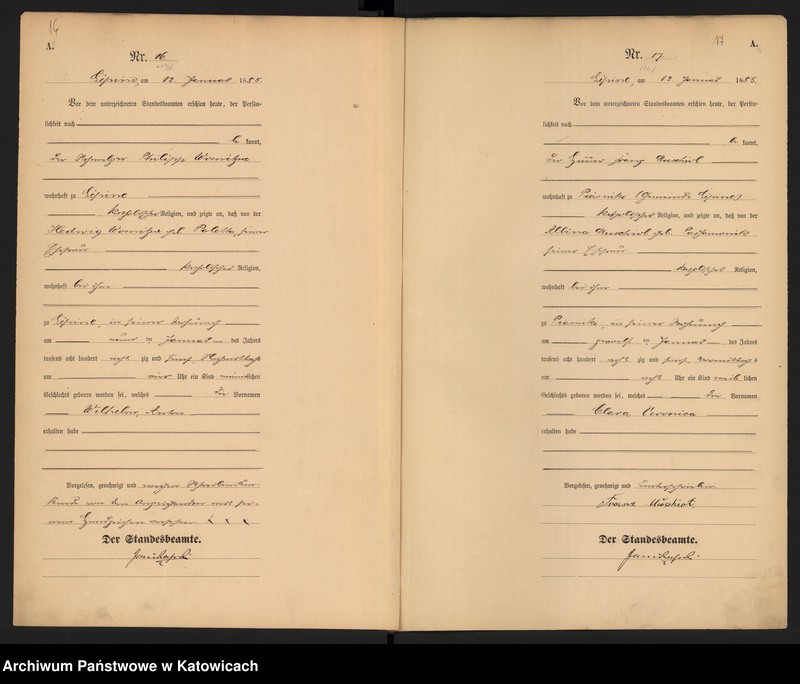 16
A.
Nr. 16
Lipine, am 12. Januar 1885.
Vor dem unterzeichneten Standesbeamten erschien heute, der Persön-
lichkeit nach
be kannt,
der
wohnhaft zu Lipine
katholischer Religion, und zeigte an, daß von der
Hedwig geb.
Ehefrau
katholischer Religion,
wohnhaft bei ihm
zu Lipine, in seiner Wohnung
am neun ten Januar des Jahres
tausend acht hundert acht zig und fünf, Nachmittags
um vier Uhr ein Kind männlichen
Geschlechts geboren worden sei, welches die Vornamen
Wilhelm, Anton
erhalten habe
Vorgelesen, genehmigt und wegen Schreibensun-
kunde von dem Anzeigenden mit sei-
nem Handzeichen versehen. X X X
Der Standesbeamte.
17
A.
Nr. 17.
Lipine, am 12 Januar 1885.
Vor dem unterzeichneten Standesbeamten erschien heute, der Persön-
lichkeit nach
be kannt,
der Häuer Franz
wohnhaft zu Piasniki (Gemeinde Lipine)
katholischer Religion, und zeigte an, daß von der
Albina geb.
seiner Ehefrau
katholischer Religion,
wohnhaft bei ihm
zu Piasniki, in seiner Wohnung
am zwölf ten Januar des Jahres
tausend acht hundert acht zig und fünf, Vormittags
um acht Uhr ein Kind weib lichen
Geschlechts geboren worden sei, welches die Vornamen
Clara, Veronica
erhalten habe
Vorgelesen, genehmigt und unterschrieben
Franz
Der Standesbeamte.
Archiwum Państwowe w Katowicach